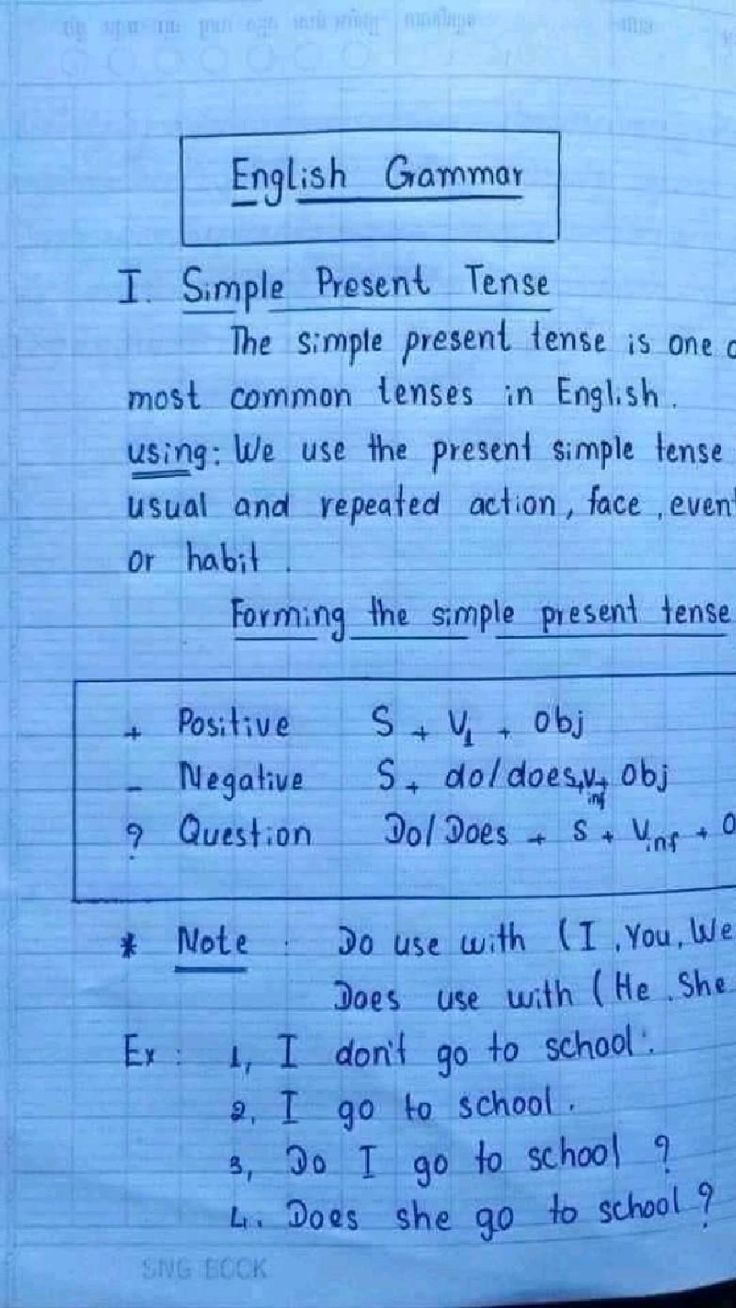 English Gammar
I. Simple Present Tense
The simple present tense is one
most common tenses in English.
using: We use the present simple tense
usual and repeated action, face, event
or habit.
Forming the simple present tense
+ Positive S + V1 + Obj
- Negative S + do/does + Vinf + Obj
? Question Do/Does + S + Vinf + O
* Note : Do use with (I, You, We
Does use with (He, She
Ex : 1, I don't go to school.
2, I go to school.
3, Do I go to school ?
4. Does she go to school ?
SNG BCCK